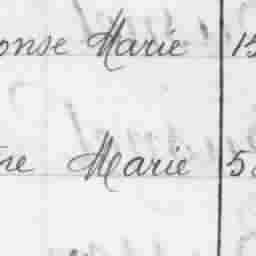 onse Marie 15
ne Marie 5